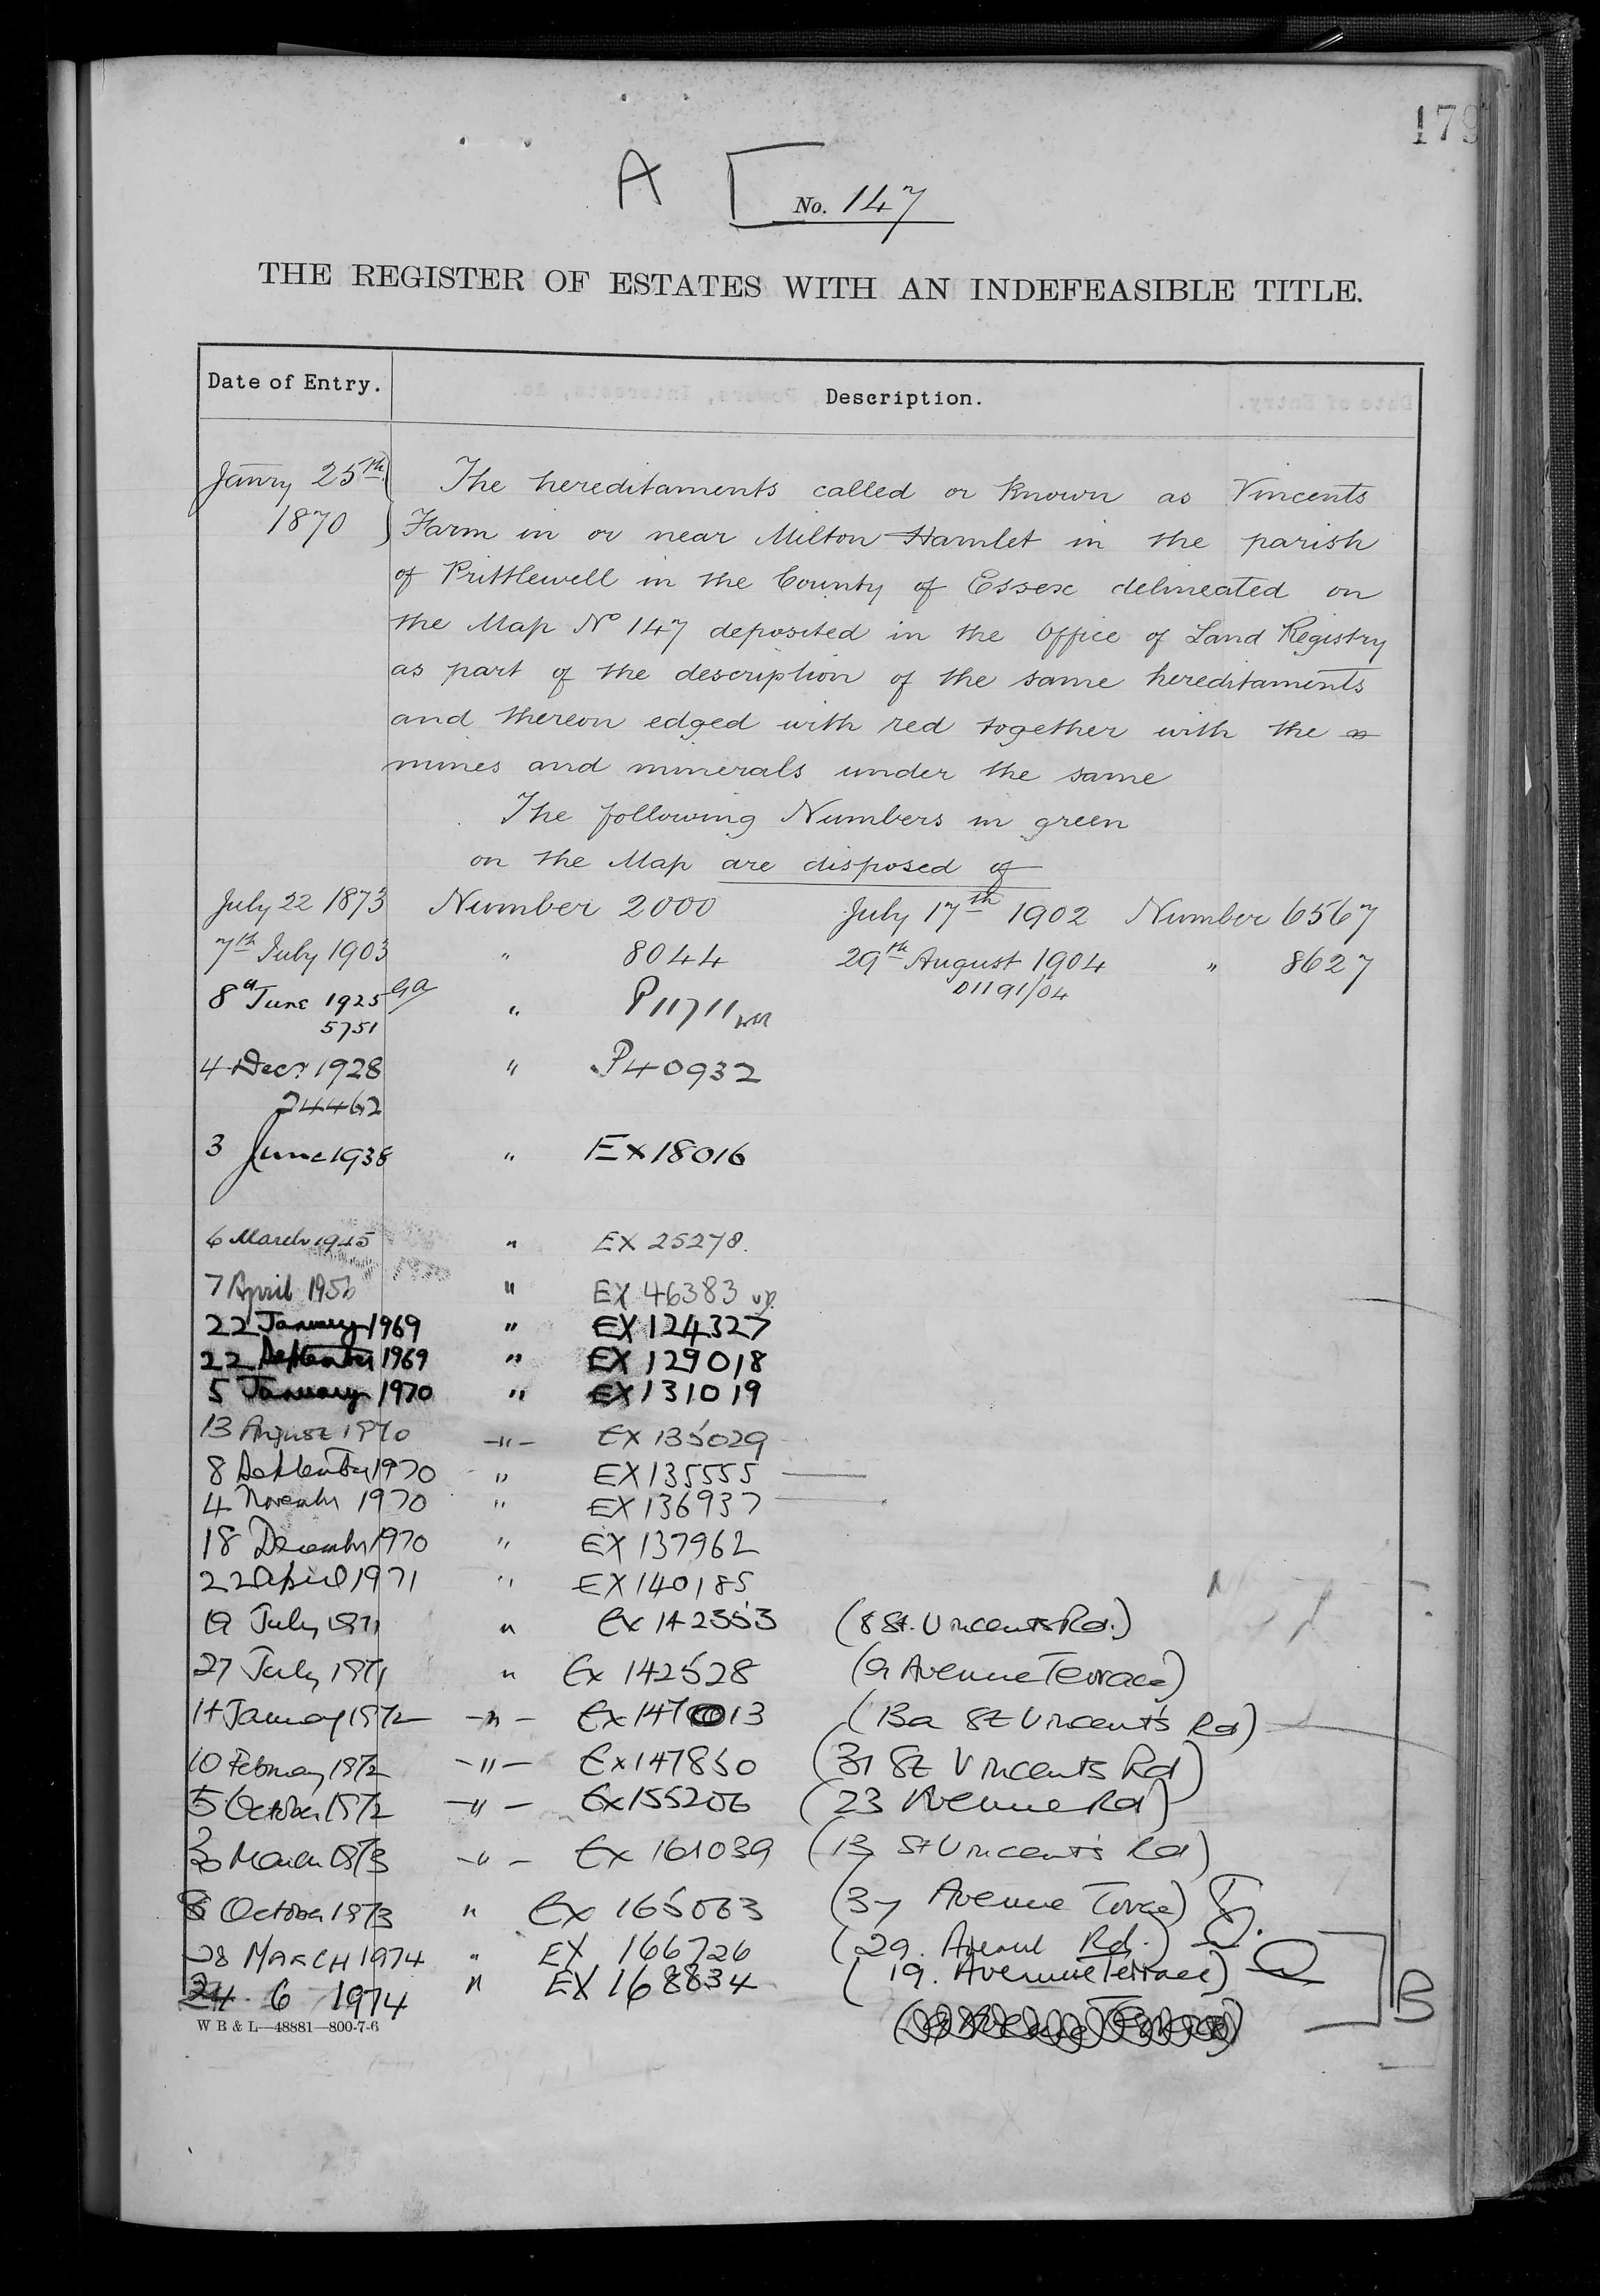 179
A
No. 147
THE REGISTER OF ESTATES WITH AN INDEFEASIBLE TITLE.
Date of Entry. Description.
Janry 25th The hereditaments called or known as Vincents
1870 Farm in or near Milton Hamlet in the parish
of Prittlewell in the County of Essex delineated on
the Map No 147 deposited in the Office of Land Registry
as part of the description of the same hereditaments
and thereon edged with red together with the
mines and minerals under the same
The following Numbers in green
on the Map are disposed of
July 22 1873 Number 2000 July 17th 1902 Number 6567
7th July 1903 " 8044 29th August 1904 " 8627
8 June 1925 " P11711 D1191/04
5751
4 Decr 1928 " P40932
24462
3 June 1938 " EX18016
6 March 1945 " EX 25278.
7 April 1956 " EX 46383
22 January 1969 " EX 124327
22 September 1969 " EX 129018
5 January 1970 " EX 131019
13 August 1970 -"- EX 135029
8 September 1970 " EX 135555
4 November 1970 " EX 136937
18 December 1970 " EX 137962
22 April 1971 " EX 140185
19 July 1971 " EX 142353 (8 St. Vincents Rd.)
27 July 1971 " EX 142528 (9 Avenue Terrace)
14 January 1972 -"- EX 147013 (13a St Vincent's Rd)
10 February 1972 -"- EX 147850 (31 St Vincents Rd)
5 October 1972 -"- EX 155206 (23 Avenue Rd)
30 March 1973 -"- EX 161039 (13 St Vincent's Rd)
8 October 1973 " EX 165063 (37 Avenue Terrace)
28 MARCH 1974 " EX 166726 (29. Avenue Rd.)
24. 6 1974 " EX 168834 (19. Avenue Terrace)
B
W B & L—48881—800-7-6